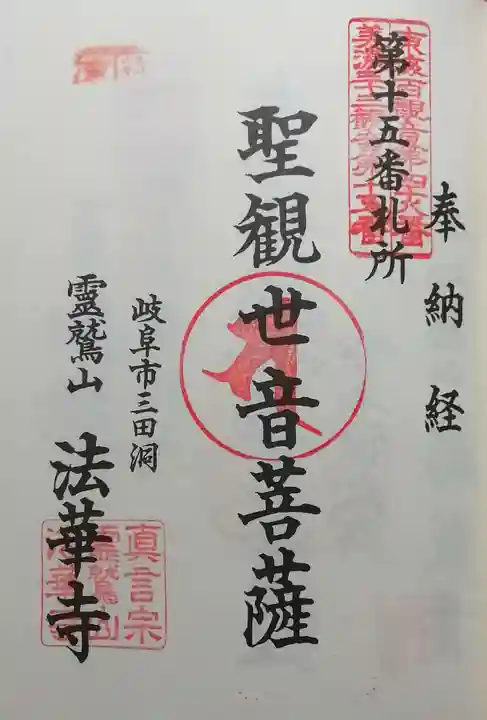 奉納経
第十五番札所
聖観世音菩薩
岐阜市三田洞
霊鷲山 法華寺
真言宗
霊鷲山
法華寺